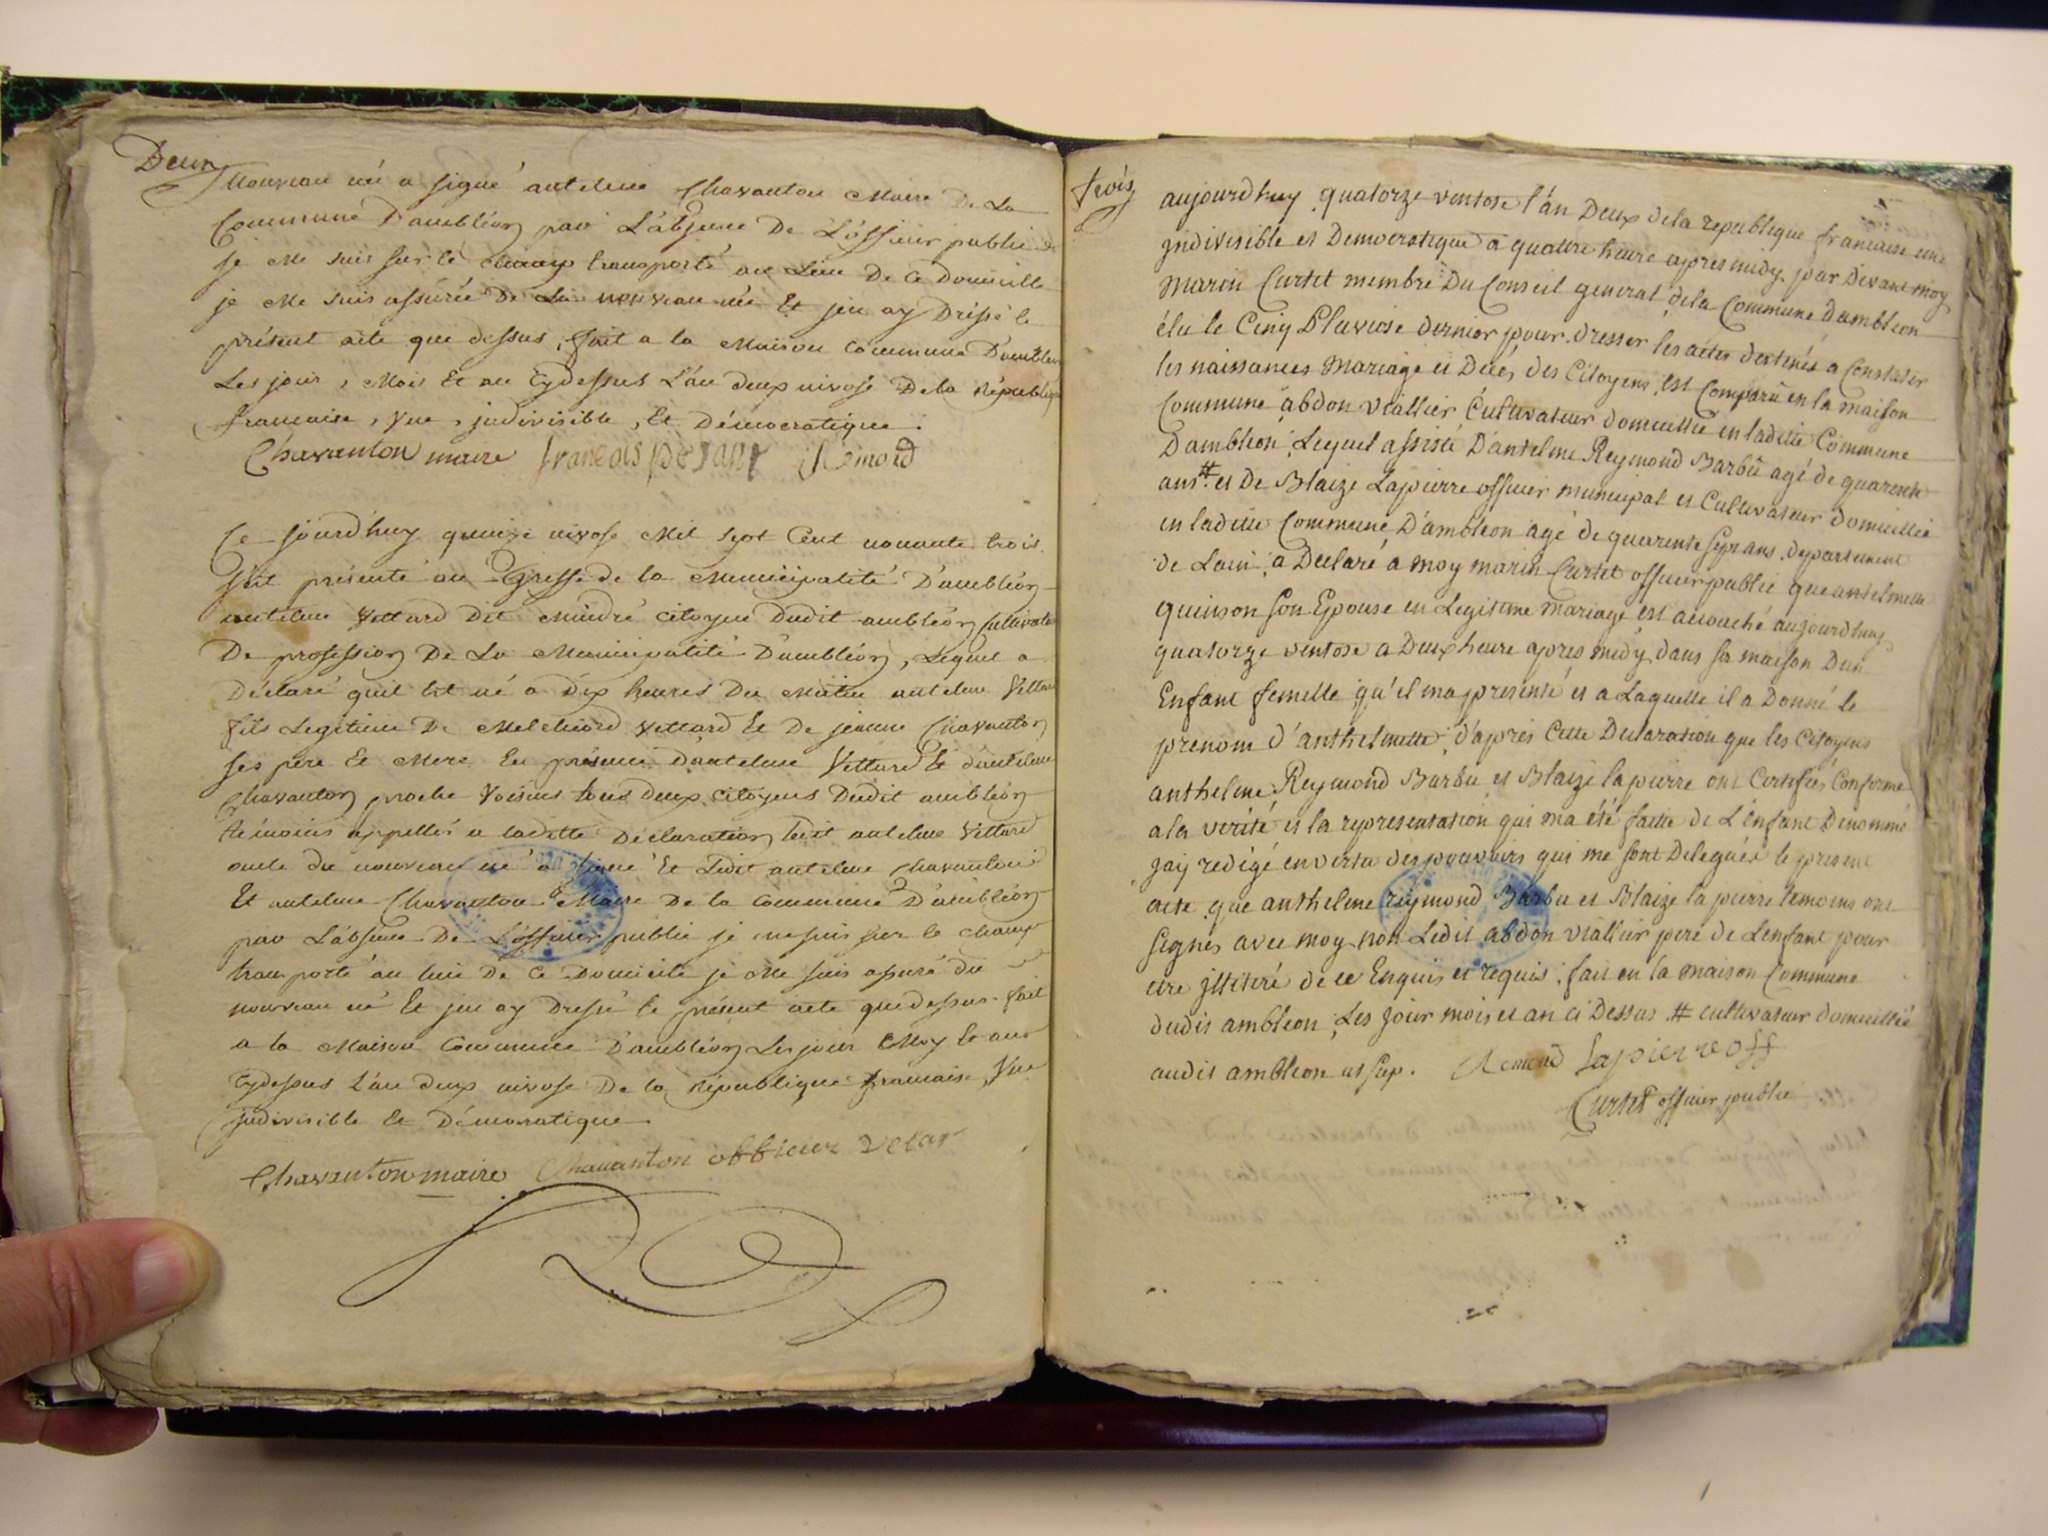 Deux
nouveau né a signé antelme Chavanton Maire De La
Commune D'ambléon par L'absence De L'officier public
je Me suis sur le champ transporté au Lieu De Ce Domicille
je Me suis assurée De nouveau né Et jen ay Dressé le
présent acte que dessus, fait a la Maison Commune D'ambléon
Les jour, Mois Et an Cydessus L'an deux nivose De la République
francaise, Vne, jndivisible, Et Démocratique.
Chavanton maire francois Remond
Ce jourd'huy quinze nivose Mil sept Cent nonante trois
S'est présenté au Greffe de la Municipalité D'ambléon
antelme Vettard Dit citoyen Dudit ambléon Cultivateur
De profession De La Municipalité D'ambléon, Lequel a
Déclaré quil est né a Dix heures Du Matin antelme Vettard
fils Legitime De Melchiord Vettard Et De jeanne Chavanton
Ses père Et Mere En présence D'antelme Vettard Et d'antelme
Chavanton proche Voisins tous deux citoyens Dudit ambléon
témoins appellés a laditte Déclaration ledit antelme Vettard
oncle du nouveau né a signé Et Ledit antelme Chavanton
Et antelme Chavanton Maire De la Commune D'ambléon
par L'absence De L'officier public je me suis sur le champ
transporté au lieu De Ce Domicile je Me suis assuré du
nouveau né Et jen ay Dressé le présent acte que dessus fait
a la Maison Commune D'ambléon Les jour Moy Et an
Cydessus L'an deux nivose De la République francaise Vne
jndivisible Et Démocratique
Chavanton maire Chavanton officier vetar
trois
aujourdhuy quatorze ventose l'an Deux dela republique francaise une
jndivisible et Democratique a quattre heure apres midy, par Devant moy
Marin Curtet membre Du Conseil general dela Commune dambleon
élu le Cinq Pluviose dernier pour dresser les actes destinés a Constater
les naissances Mariage et Décés des Citoyens, est Comparu en la maison
Commune abdon viallier Cultivateur domicillié en laditte Commune
D'ambleon, Lequel assisté D'antelme Reymond Barbu agé de quarente
ans # et De Blaize Lapierre officier municipal et Cultivateur domicillié
en laditte Commune D'ambleon agé de quarente sept ans, departement
de Lain, a Declaré a moy marin Curtet officier public que antelmette
quinson son Epouse en Legitime mariage est accouché aujourdhuy
quatorze ventose a Deux heure apres midy dans sa maison Dun
Enfant femelle qu'il ma presenté et a Laquelle il a Donné le
prenom d'anthelmette, d'aprés Cette Declaration que les Citoyens
anthelme Reymond Barbu et Blaize lapierre ont Certifiés Conforme
ala verité et la representation qui ma été faitte de L'enfant Denommé
jay redigé en vertu des pouvoirs qui me sont Delegués le present
acte que anthelme reymond Barbu et Blaize la pierre temoins ont
signés avec moy non Ledit abdon viallier pere de Lenfant pour
etre jlliteré de ce Enquis et requis, fait en la maison Commune
dudit ambleon, Les jour mois et an ci Dessus # cultivateur domicillié
audit ambleon Remond Lapierre off
Curtet officier public